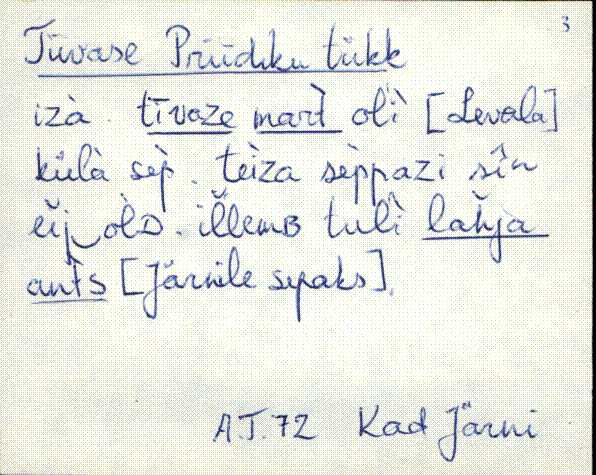 3
Tiivase Priidiku tükk
izà. tīvaze mar̀t̀ olì [Levala]
külà sèp. teìza sèppazi sîn
eĭj òlD. illemB tulì lahja
ants [Järnile sepaks].
A.T.72 Kad Järni